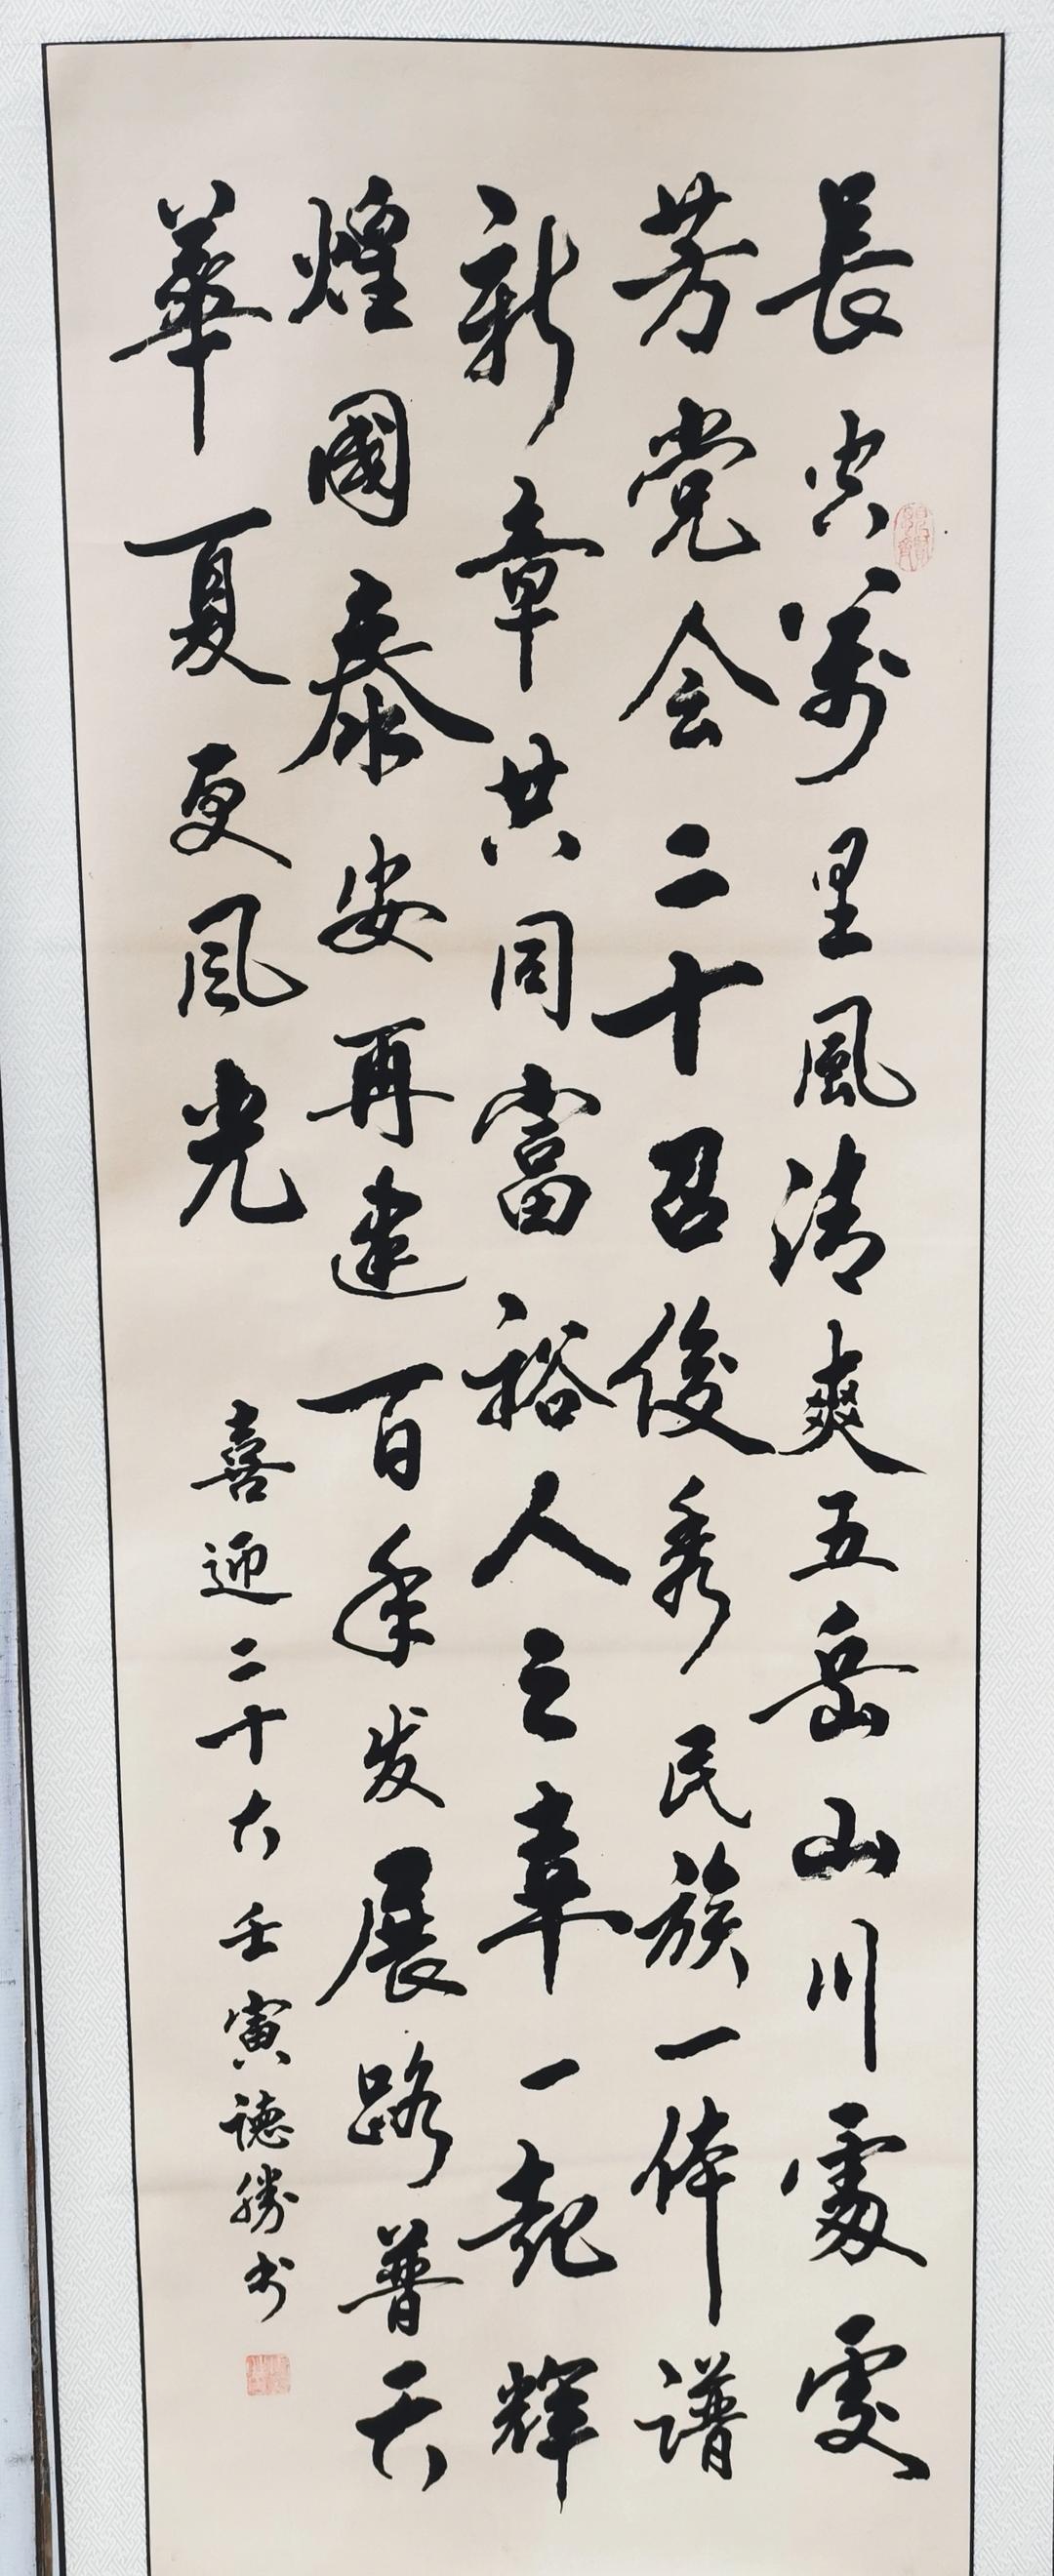 長空萬里風清爽五岳山川處處
芳党会二十召俊秀民族一体譜
新章共同富裕人之幸一起輝
煌國泰安再建百年发展路普天
華夏更风光
喜迎二十大 壬寅德勝书